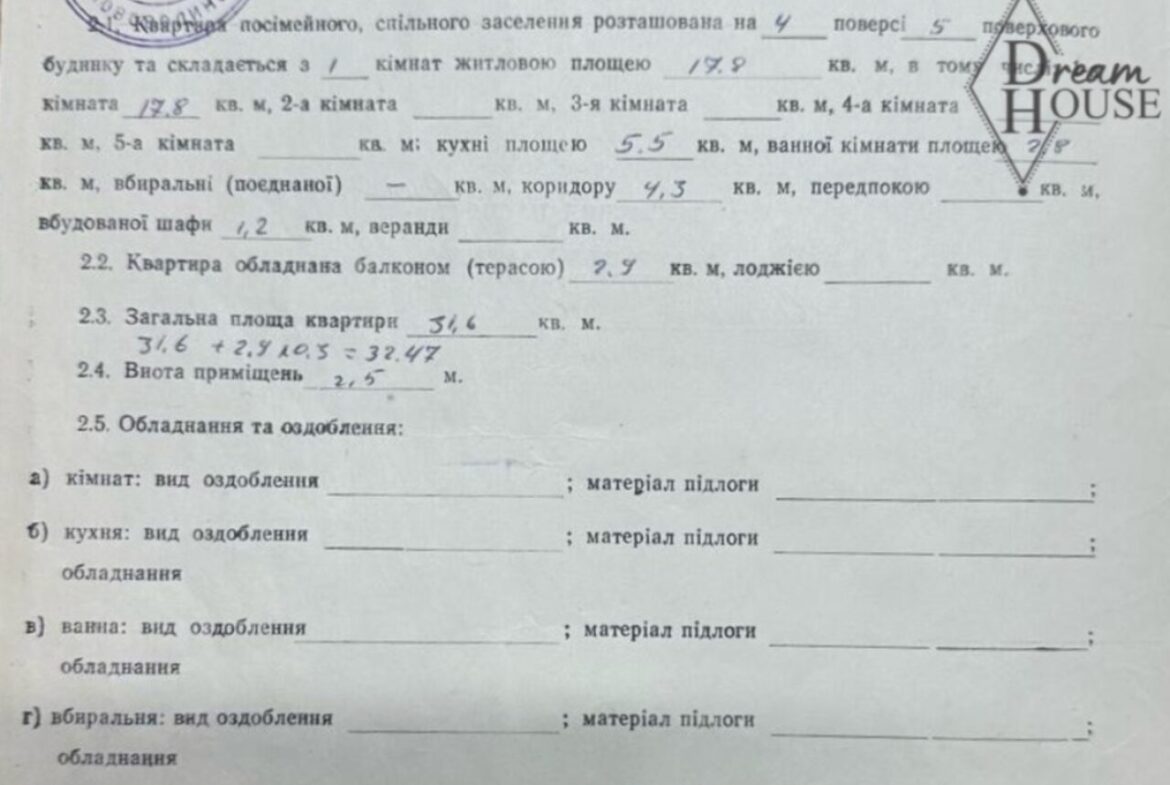 2.1. Квартира посімейного, спільного заселення розташована на 4 поверсі 5 поверхового
будинку та складається з 1 кімнат житловою площею 17.8 кв. м, в тому числі
кімната 17.8 кв. м, 2-а кімната кв. м, 3-я кімната кв. м, 4-а кімната
кв. м, 5-а кімната кв. м; кухні площею 5.5 кв. м, ванної кімнати площею 2,8
кв. м, вбиральні (поєднаної) — кв. м, коридору 4,3 кв. м, передпокою кв. м,
вбудованої шафи 1,2 кв. м, веранди кв. м.
2.2. Квартира обладнана балконом (терасою) 2.9 кв. м, лоджією кв. м.
2.3. Загальна площа квартири 31,6 кв. м.
31.6 + 2,9 x 0.3 = 32.47
2.4. Висота приміщень 2,5 м.
2.5. Обладнання та оздоблення:
а) кімнат: вид оздоблення ; матеріал підлоги ;
б) кухня: вид оздоблення ; матеріал підлоги ;
обладнання
в) ванна: вид оздоблення ; матеріал підлоги ;
обладнання
г) вбиральня: вид оздоблення ; матеріал підлоги ;
обладнання
Dream
HOUSE